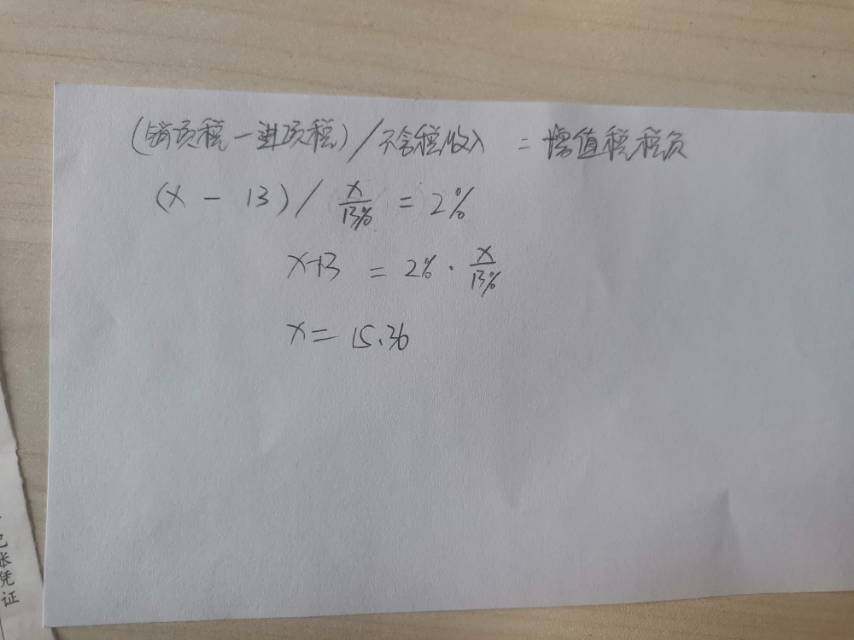 (销项税 - 进项税) / 不含税收入 = 增值税税负
(x - 13) / x/13% = 2%
x-13 = 2% · x/13%
x = 15.36
记账凭证